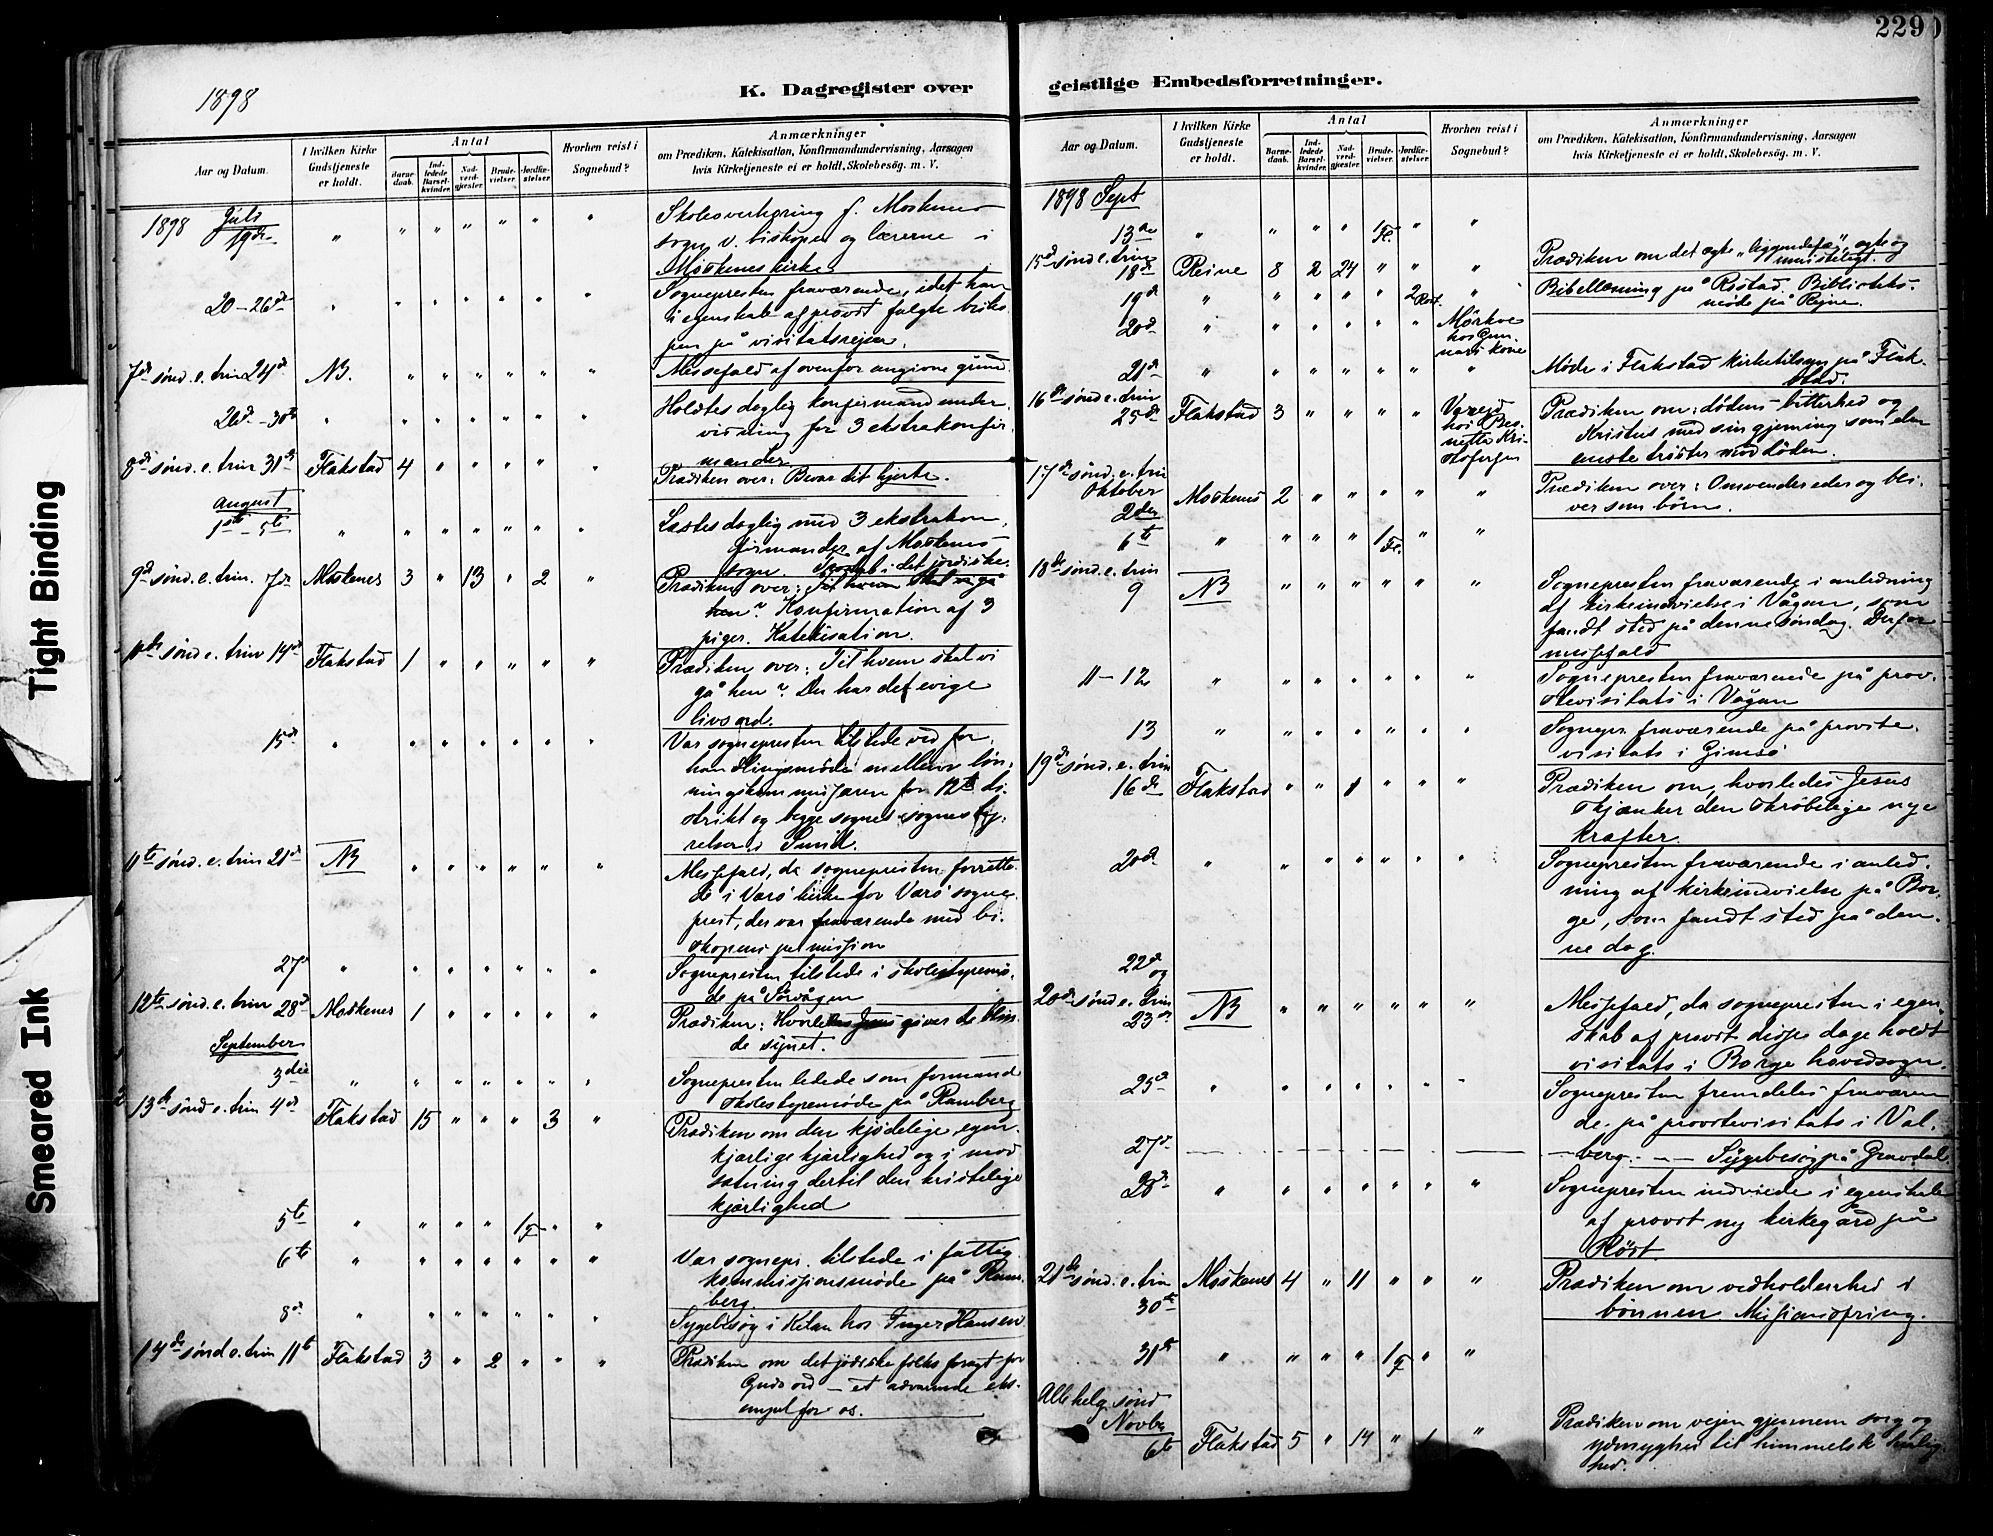 229
1898
K. Dagregister over
Aar og Datum.
I hvilken Kirke Gudstjeneste er holdt.
Antal
Barne-daab.
Ind-ledede Barsel-kvinder.
Nad-verd-gjester.
Brude-vielser.
Jordfæ-stelser.
Hvorhen reist i Sognebud?
Anmærkninger
om Prædiken, Katekisation, Konfirmandundervisning, Aarsagen
hvis Kirketjeneste ei er holdt, Skolebesög. m. V.
1898 Juli
19de " " " " " " " Skolesverhøring f. Moskenes
sogn v. biskopen og lærerne i
Moskenes kirke
20-26de " " " " " " " Sognepresten fraværende, idet han
i egenskab af provst fulgte bisko-
pen på visitatsrejsen.
7de sønd. e. trin 24de NB. " " " " " " Messefald af ovenfor angivne grund
26de-30te " " " " " " " Holdtes daglig konfirmandunder-
visning for 3 ekstrakonfir-
mander
8de sønd. e. trin 31te Flakstad 4 " " " " " Prædiken over: Bevar dit hjerte.
August
1ste-5te " " " " " " " Læstes daglig med 3 ekstrakon-
firmander af Moskenes
sogn.
9de sønd. e. trin. 7de Moskenes 3 " 13 " 2 " Prædiken over: i det jordiske.
Konfirmation af 3
piger. Katekisation.
10de sønd e. trin 14de Flakstad 1 " " " " " Prædiken over: Til hvem skal vi
gå hen? Du har det evige
livs ord.
15de " " " " " " " Var sognepresten tilstede ved for-
handlingsmöde mellem løn-
ningskommissæren for 12te di-
strikt og begge sognes sognesty-
relser i Sund.
11te sønd. e. trin 21de NB " " " " " " Messefald, da sognepresten forrette-
de i Værö kirke for Værö sogne-
prest, der var fraværende med bi-
skopens permission
27de " " " " " " " Sognepresten tilstede i skolestyremö-
de på Sörvågen
12te sønd. e. trin 28de Moskenes 1 " " " " " Prædiken: Hvorledes Jesus giver de blin-
de synet.
September
3die " " " " " " " Sognepresten ledede som formand
skolestyremöde på Ramberg
13de sønd e. trin 4de Flakstad 15 " " " 3 " Prædiken om den kjødelige egen-
kjærlige kjærlighed og i mod-
sætning dertil den kristelige
kjærlighed
5te " " " " 1 " "
6te " " " " " " " Var sognepr. tilstede i fattig-
kommissionsmöde på Ram-
berg.
8de " " " " " " " Sygebesög i Kilan hos Inger Hansen
14de sønd e. trin 11te Flakstad 3 " 2 " " " Prædiken om det jødiske folks foragt for
Guds ord – et advarende eks-
empel for os.
geistlige Embedsforretninger.
Aar og Datum.
I hvilken Kirke Gudstjeneste er holdt.
Antal
Barne-daab.
Ind-ledede Barsel-kvinder.
Nad-verd-gjester.
Brude-vielser.
Jordfæ-stelser.
Hvorhen reist i Sognebud?
Anmærkninger
om Prædiken, Katekisation, Konfirmandundervisning, Aarsagen
hvis Kirketjeneste ei er holdt, Skolebesög. m. V.
1898 Sept
13de " " " " 1 Fl. " "
15de sønd e. trin
18de Reine 8 2 24 " " " Prædiken om det
19de " " " " " 2 " Bibellæsning på Bibliotheks-
möde på Rejne.
20de " " " " " " Mørkve
hos Gun-
nars kone
21de " " " " " " " Møde i Flakstad kirketilsyn på Flak-
stad.
16de sønd e. trin
25de Flakstad 3 " " " " Prædiken om: dödens bitterhed og
Kristus med sin gjerning som den
eneste tröster mod döden.
17de sønd. e. trin
Oktober
2den Moskenes 2 " " " " " Prædiken over: Omvender eder og bli-
ver som børn.
6te " " " " 1 Fl. " "
18de sønd e. trin
9 NB " " " " " " Sognepresten fraværende i anledning
af kirkeindvielse i Vågan, som
fandt sted på denne söndag. Derfor
messefald
11-12 " " " " " " " Sognepresten fraværende på prov-
stevisitats i Vågan
13 " " " " " " " Sognepr. fraværende på provste-
visitats i Gimsö
19de sønd. e. trin
16de Flakstad " " 1 " " " Prædiken om, hvorledes Jesus
skjænker den skröbelige nye
kræfter.
20de " " " " " " " Sognepresten fraværende i anled-
ning af kirkeindvielse på Bor-
ge, som fandt sted på den-
ne dag.
22de
og
20de sønd e. trin
23de NB " " " " " " Messefald, da sognepresten i egen-
skab af provst disse dage holdt
visitats i Borge hovedsogn.
25de " " " " " " " Sognepresten fremdeles fraværen-
de på provstevisitats i Val-
27de berg. – – Sygebesög på Gravdal
28de " " " " " " " Sognepresten indviede i egenskab
af provst ny kirkegård på
Röst
21de sønd. e. trin
30te Moskenes 4 " 11 " " " Prædiken om vedholdenhed i
bønnen. Missionsofring.
31te " " " " 1 " "
Alle helg. sønd
Novbr
6te Flakstad 5 " 14 " 1 " Prædiken om vejen gjennem sorg og
ydmyghed til himmelsk herlig-
hed.
Tight Binding
Smeared Ink